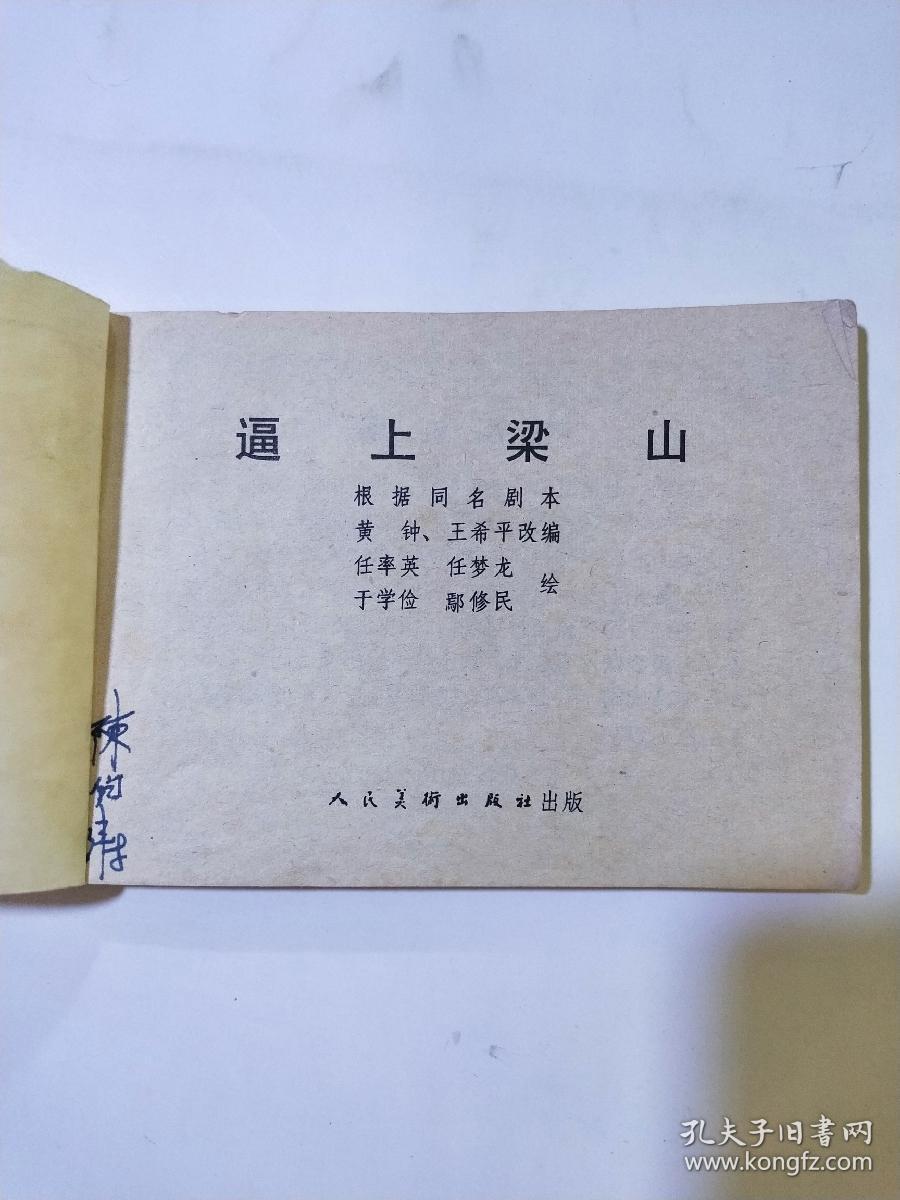 逼上梁山
根据同名剧本
黄钟、王希平改编
任率英 任梦龙
于学俭 鄢修民 绘
人民美術出版社出版
陳
孔夫子旧書网
www.kongfz.com